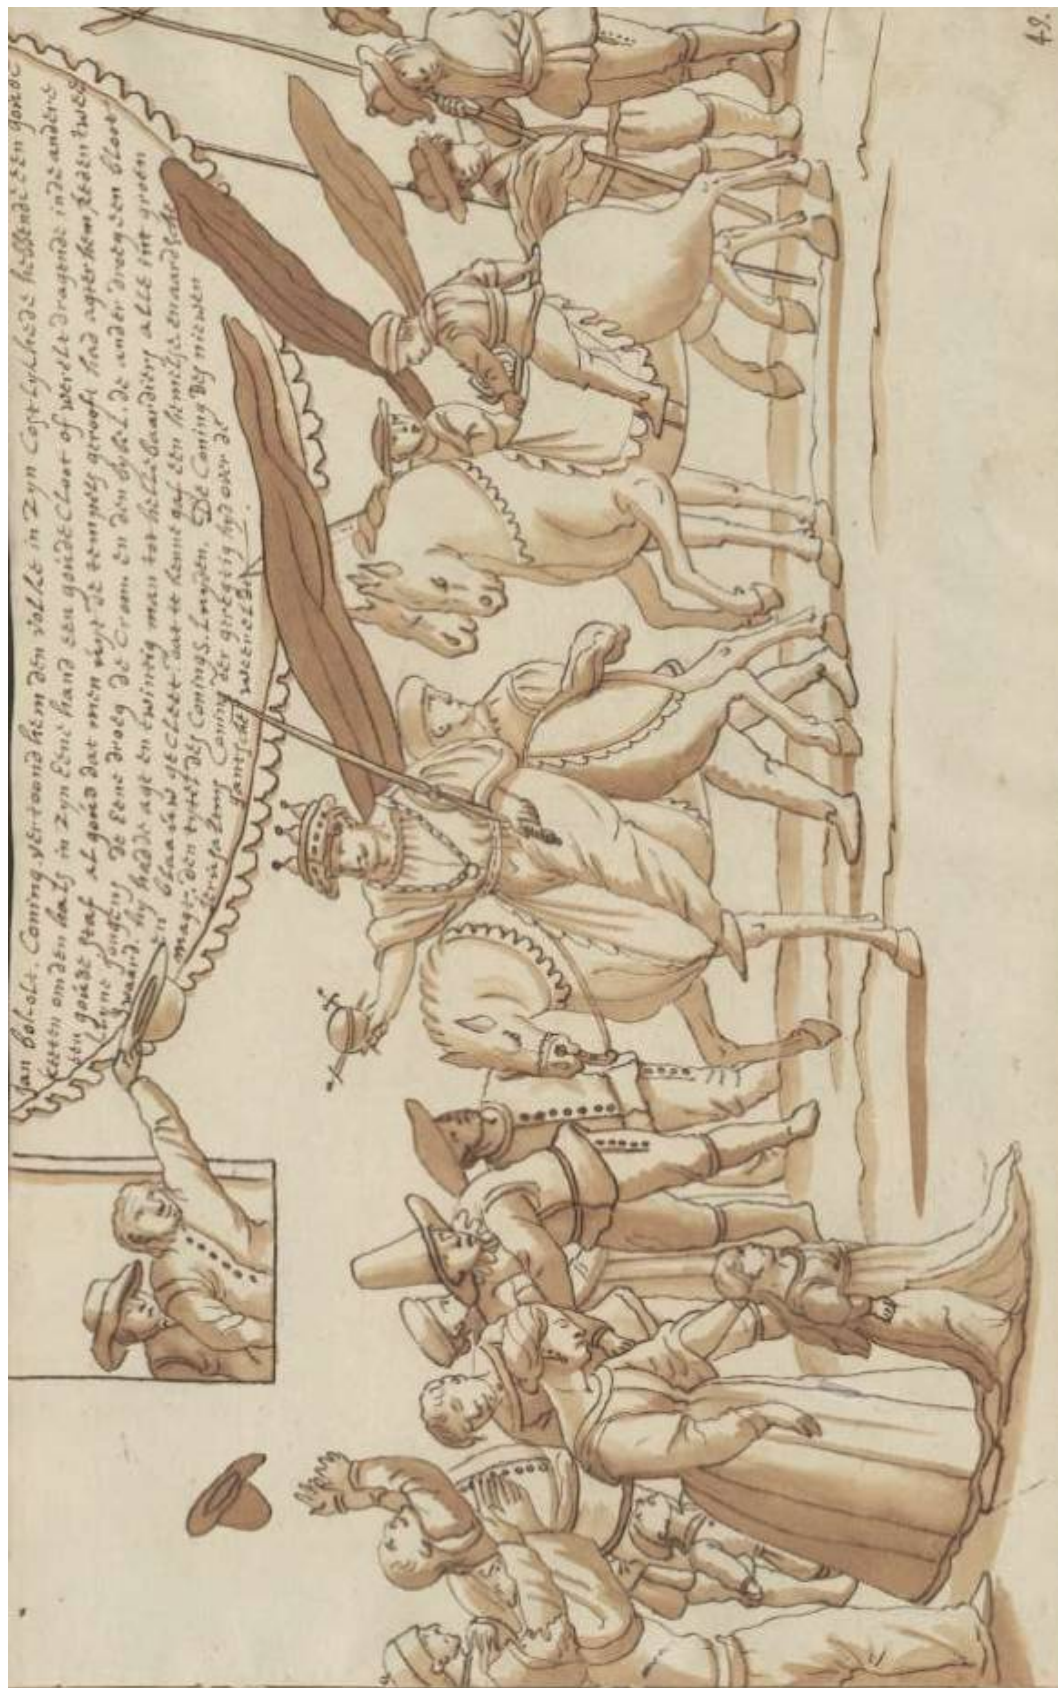 Jan bokols. Coning. vertoond hem den volke in zyn Costlykhede hebbende een goude
keeten om den hals in zyn Eene hand een goude Cloot of werelt dragende in de andere
een goude staf al goud dat men uuyt de tempels gerooft had agter hem reden twee
Eyne jongens de Eene droeg de Croon en den bybel. de ander droeg een bloot
swaard. hy hadde agt en twintig man tot hellebaardiers alle int groen
en blaauw gecleet dat te kenne gaf een hemelse en aardsche
magt. den tytel des Conings. luyden. De Coning des nieuwen
Jerusalems Coning der geregtighyd over de
gantsche weerelt.
49.